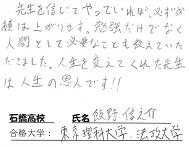 先生を信じてやっていれば、必ず偏差
値は上がります。勉強だけでなく
人間として必要なことも教えていた
だきました。人生を変えてくれた先生
は人生の恩人です!!
石橋高校 氏名 飯野 信之介
合格大学: 東京理科大学・法政大学